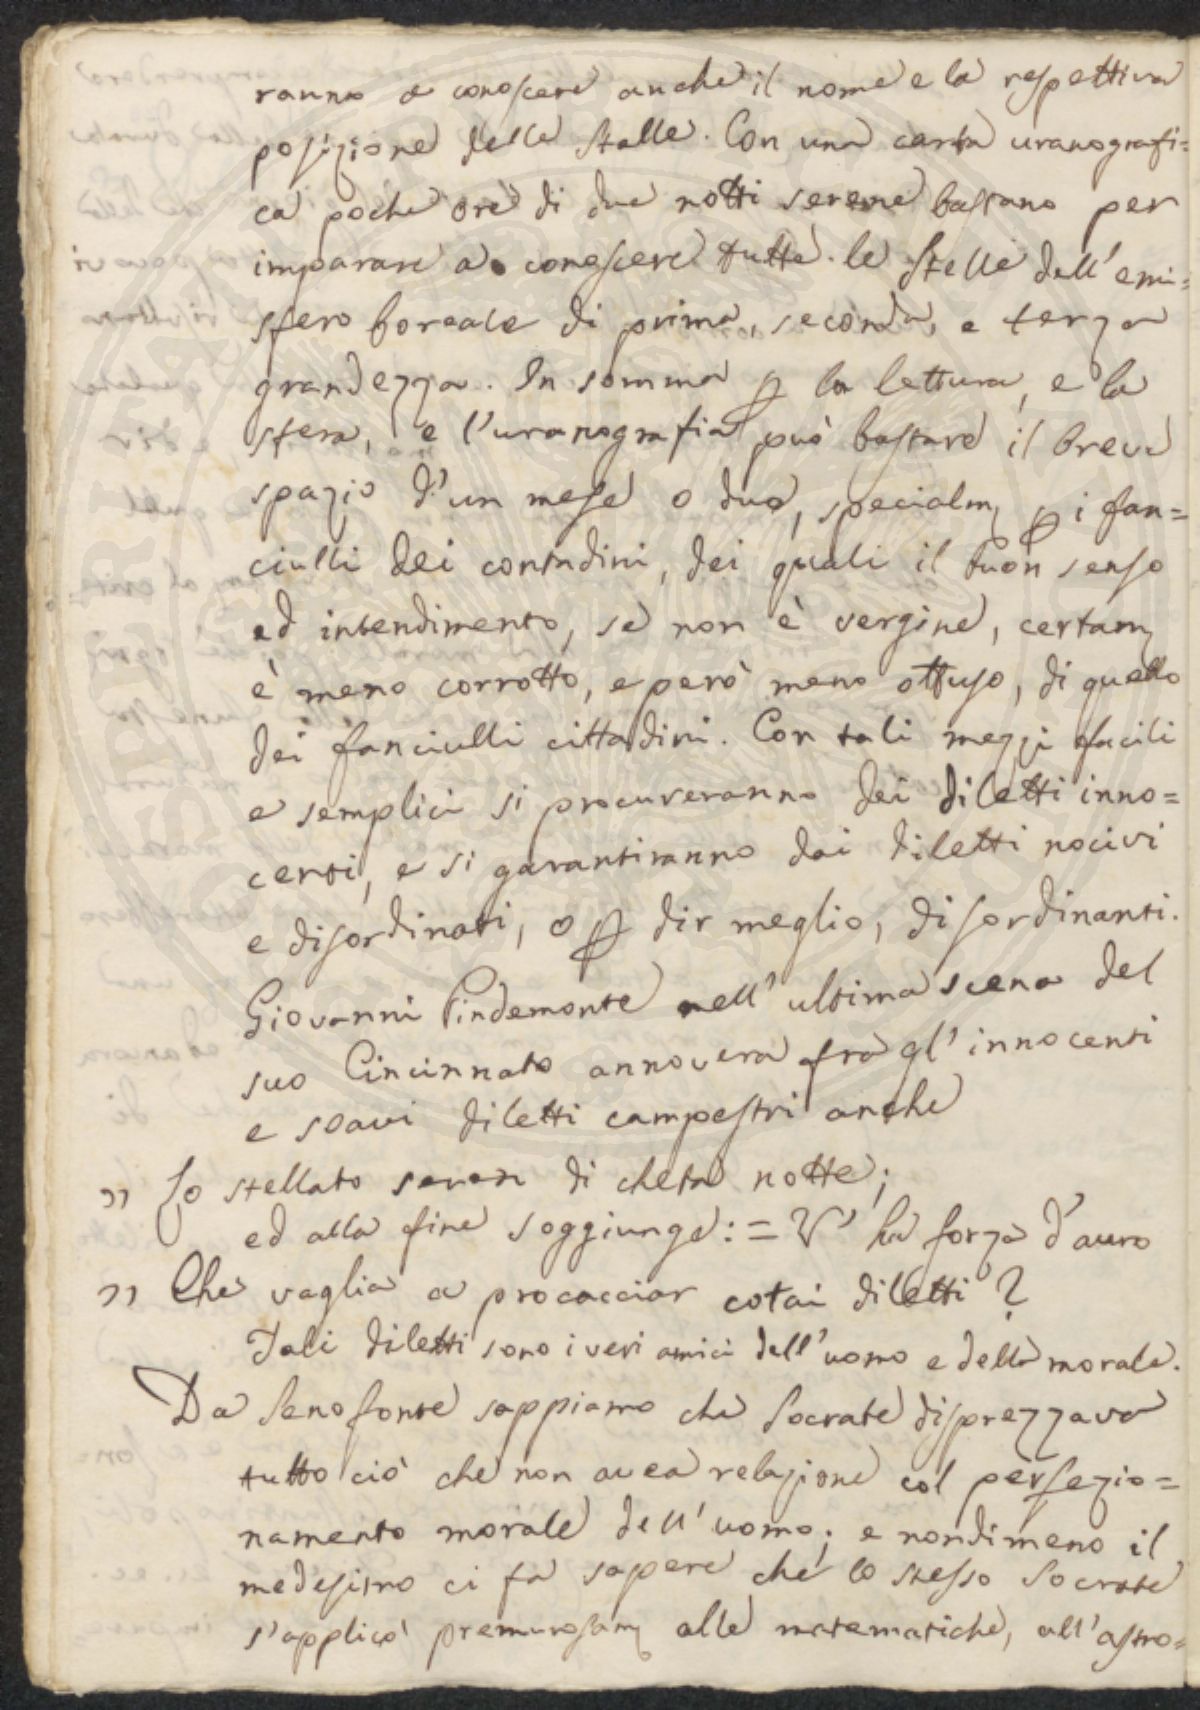 ranno a conoscere anche il nome e la respettiva
posizione delle Stelle. Con una carta uranografi=
ca poche ore di due notti serene bastano per
imparare a conoscere tutte le Stelle dell'emi=
sfero boreale di prima, seconda, e terza
grandezza. In somma ꝑ la lettura, e la
sfera, e l'uranografia può bastare il breve
spazio d'un mese o due, specialm ꝑ i fan=
ciulli dei contadini, dei quali il buon senso
ed intendimento, se non è vergine, certam
è meno corrotto, e però meno ottuso, di quello
dei fanciulli cittadini. Con tali mezzi facili
e semplici si procureranno dei diletti inno=
centi, e si garantiranno dai diletti nocivi
e disordinati, o ꝑ dir meglio, disordinanti.
Giovanni Pindemonte nell'ultima scena del
suo Cincinnato annovera fra gl'innocenti
e soavi diletti campestri anche
" Lo stellato seren di cheta notte;
ed alla fine soggiunge: = V'ha forza d'auro
" Che vaglia a procacciar cotai diletti?
Tali diletti sono i veri amici dell'uomo e della morale.
Da Senofonte sappiamo che Socrate disprezzava
tutto ciò che non avea relazione col perfezio=
namento morale dell'uomo; e nondimeno il
medesimo ci fa sapere che lo stesso Socrate
s'applicò premurosam alle matematiche, all'astro=